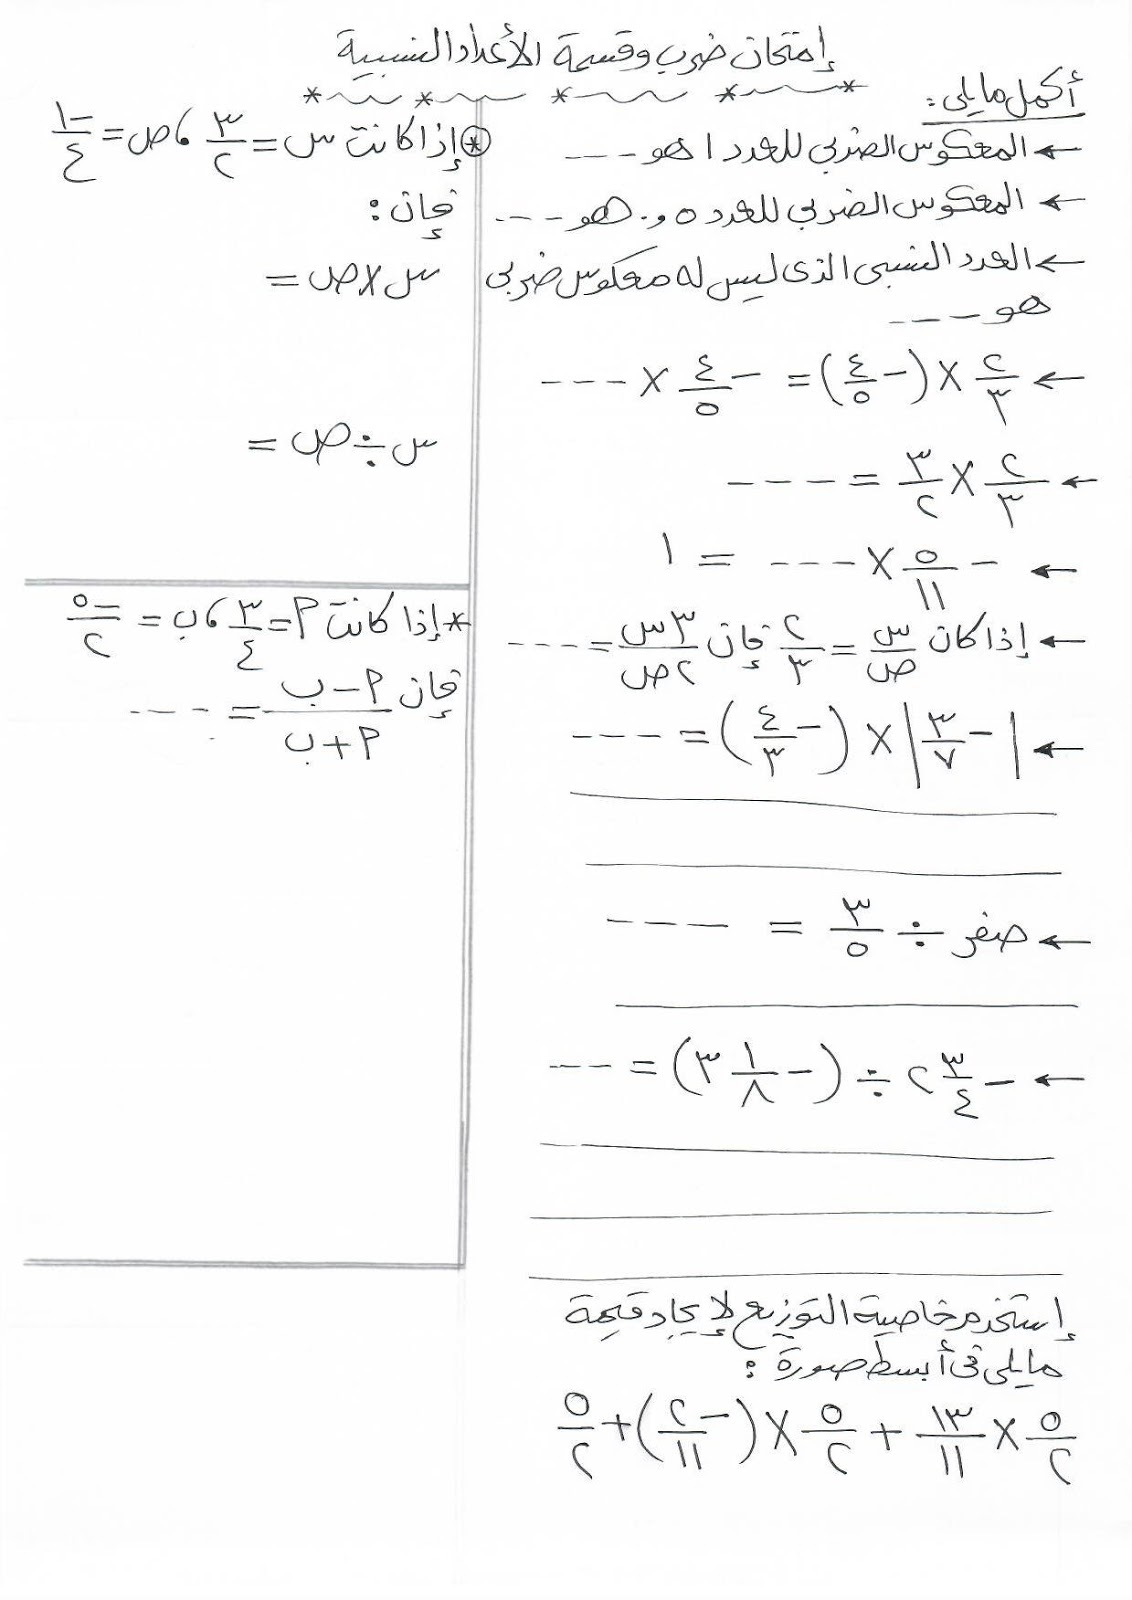 إمتحان ضرب وقسمة الأعداد النسبية
أكمل ما يلى:
← المعكوس الضربي للعدد ١ هو ---
← المعكوس الضربي للعدد ٥و. هو ---
← العدد النسبى الذى ليس له معكوس ضربى
هو ---
← ٢/٣ × (-٤/٥) = -٤/٥ × ---
← ٢/٣ × ٣/٢ = ----
← -٥/١١ × --- = ١
← إذا كان س/ص = ٢/٣ فإن ٣س/٢ص = ----
← |-٣/٧| × (-٤/٣) = ---
← صفر ÷ ٣/٥ = ----
← -٢ ٣/٤ ÷ (-٣ ١/٨) = ---
إستخدم خاصية التوزيع لإيجاد قيمة
ما يلى فى أبسط صورة:
٥/٢ × ١٣/١١ + ٥/٢ × (-٢/١١) + ٥/٢
* إذا كانت س = ٣/٢ ، ص = -١/٤
فإن:
س × ص =
س ÷ ص =
* إذا كانت م = ٣/٤ ، ب = -٥/٢
فإن م-ب/م+ب = ---